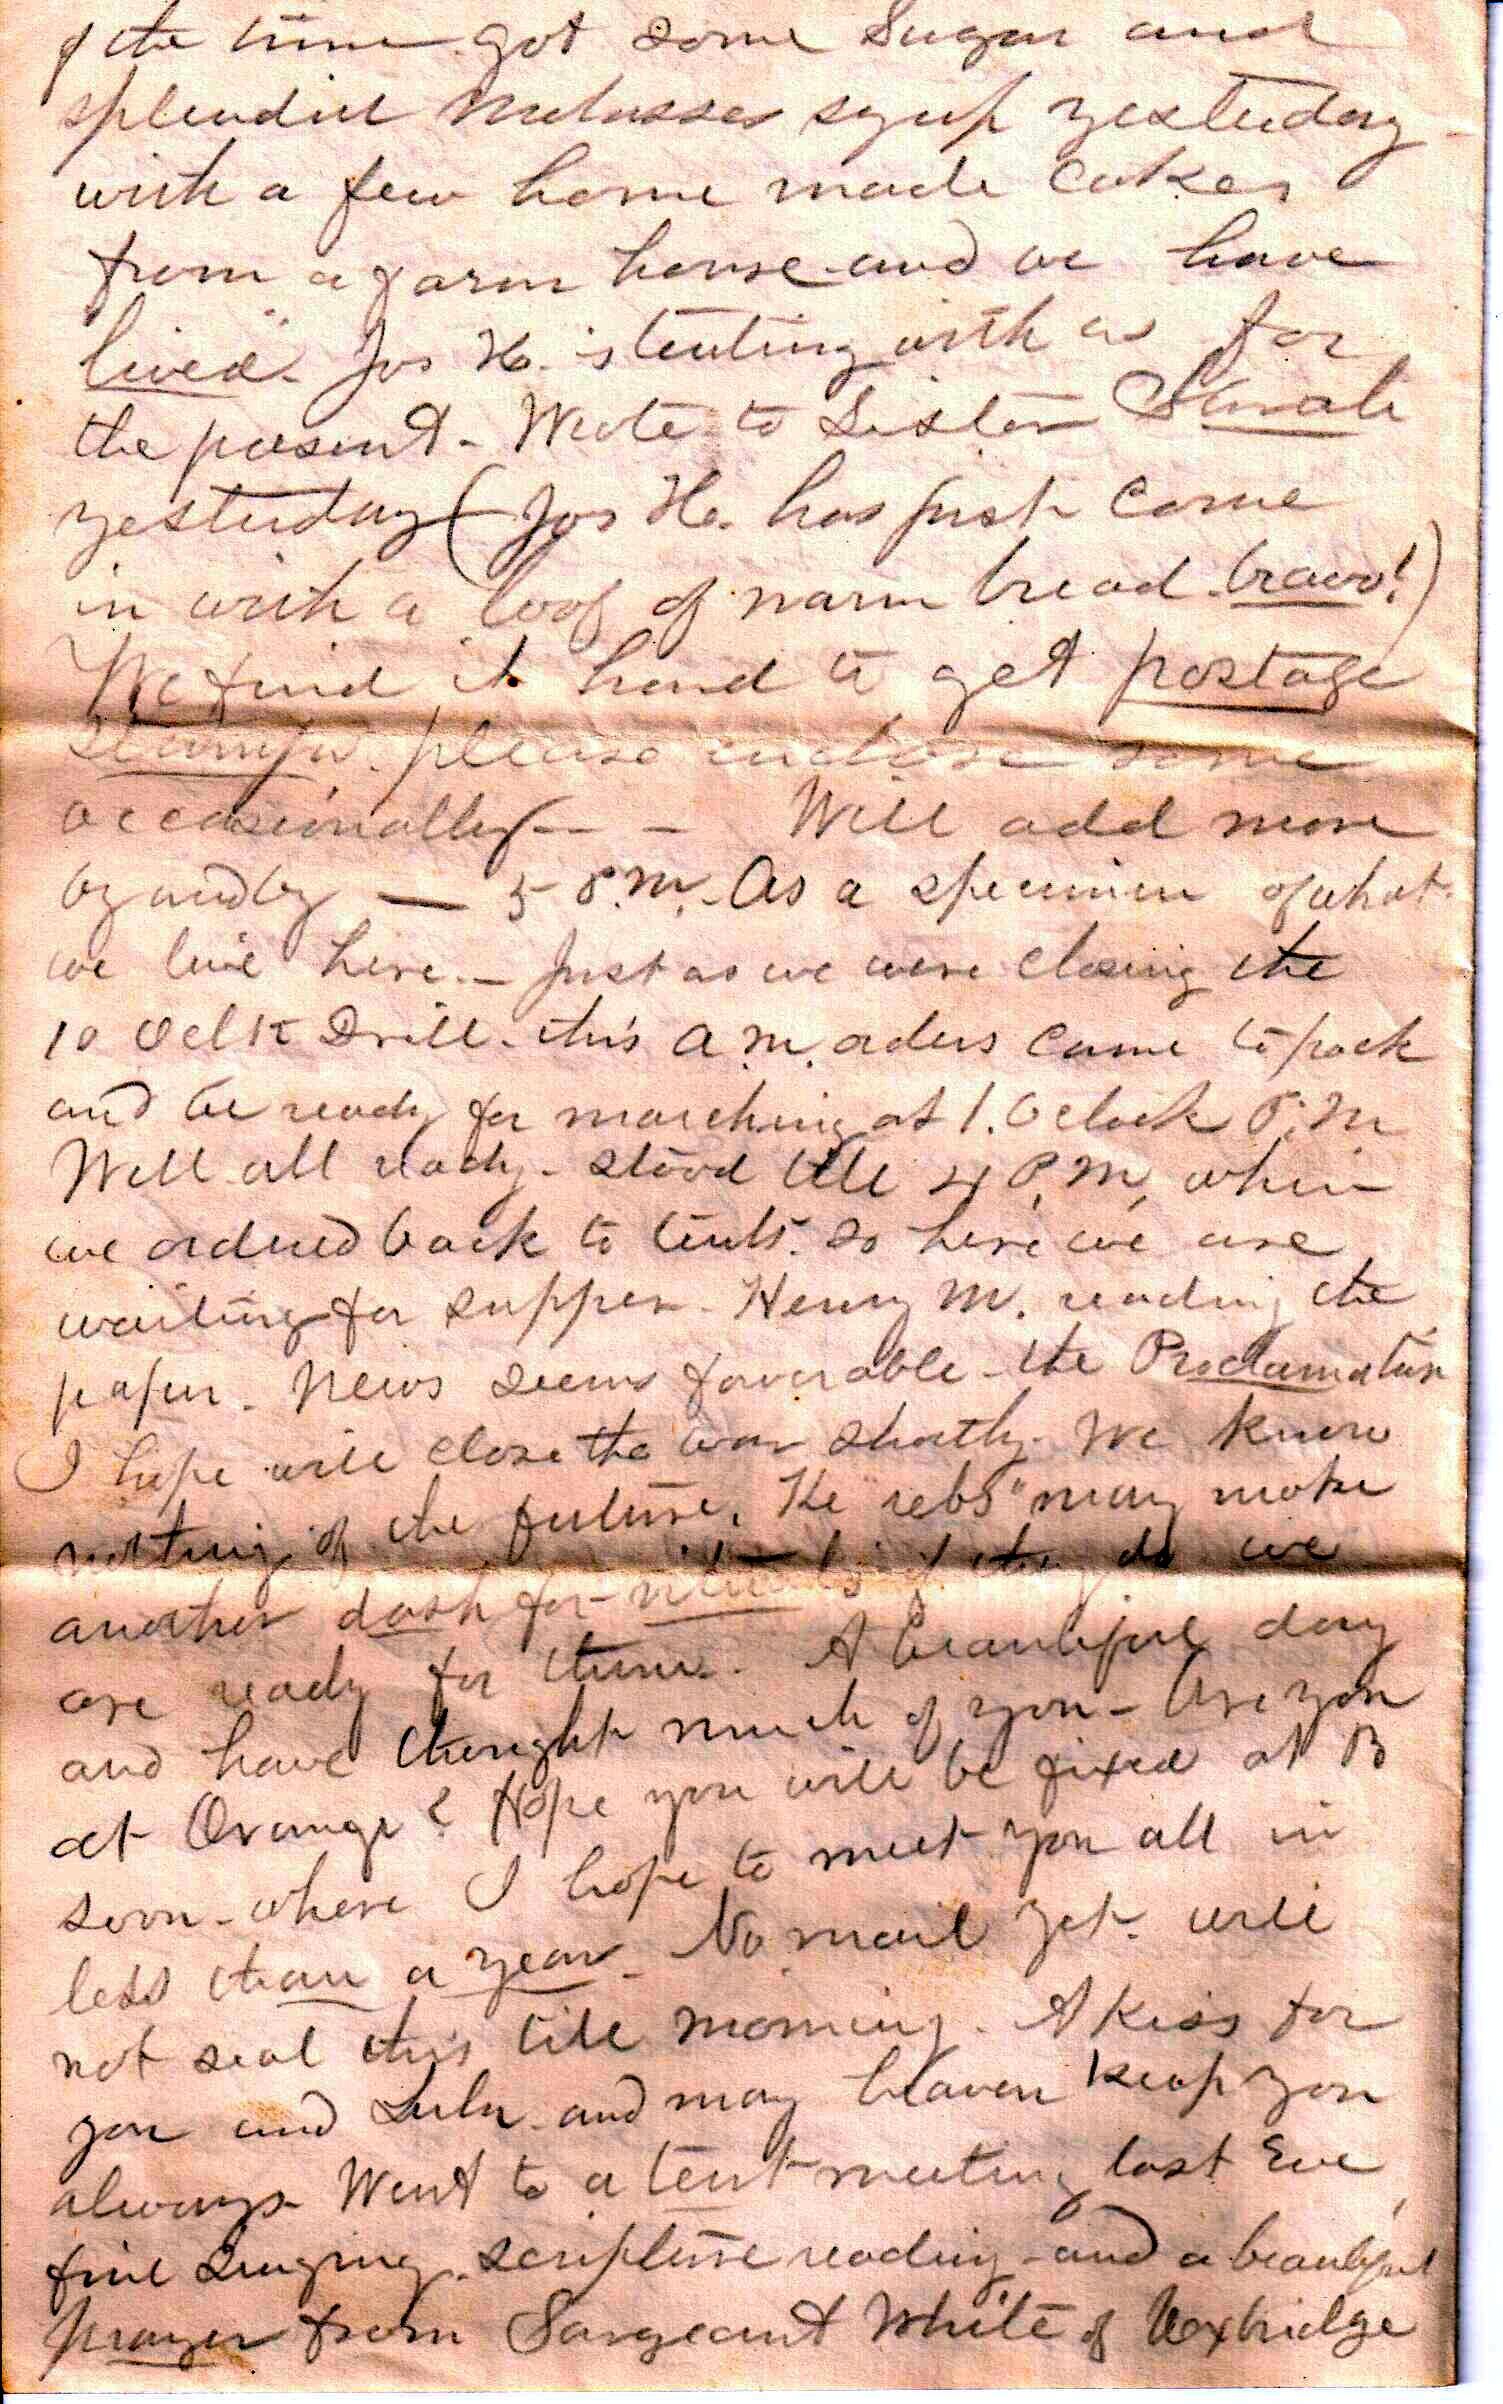 of the time got some Sugar and
splendid Molasses syrup yesterday
with a few home made cakes
from a farm house and we have
"lived". Jos H. is tenting with us for
the present - Wrote to Sister Sarah
yesterday (Jos H. has just come
in with a loaf of warm bread. bravo!)
We find it hard to get postage
stamps. please enclose some
occasionally - - Will add more
by and by — 5 P.M. - As a specimen of what
we live here. - Just as we were closing the
10 Oclk Drill - this A.M. orders came to pack
and be ready for marching at 1. Oclock P.M
Well all ready - stood till 4 P.M, when
we ordered back to tents. so here we are
waiting for supper - Henry M. reading the
paper. News seems favorable - the Proclamation
I hope will close the war shortly. We know
nothing of the future, The rebs" may make
another dash for if they do we
are ready for them. A beautiful day
and have thought much of you - Are you
at Orange? Hope you will be fixed at B
soon - where I hope to meet you all in
less than a year. No mail yet. will
not seal this till morning. A kiss for
you and Lulu - and may heaven keep you
always - Went to a tent meeting last Eve,
fine singing. scripture reading - and a beautiful
prayer from Sargeant White of Uxbridge